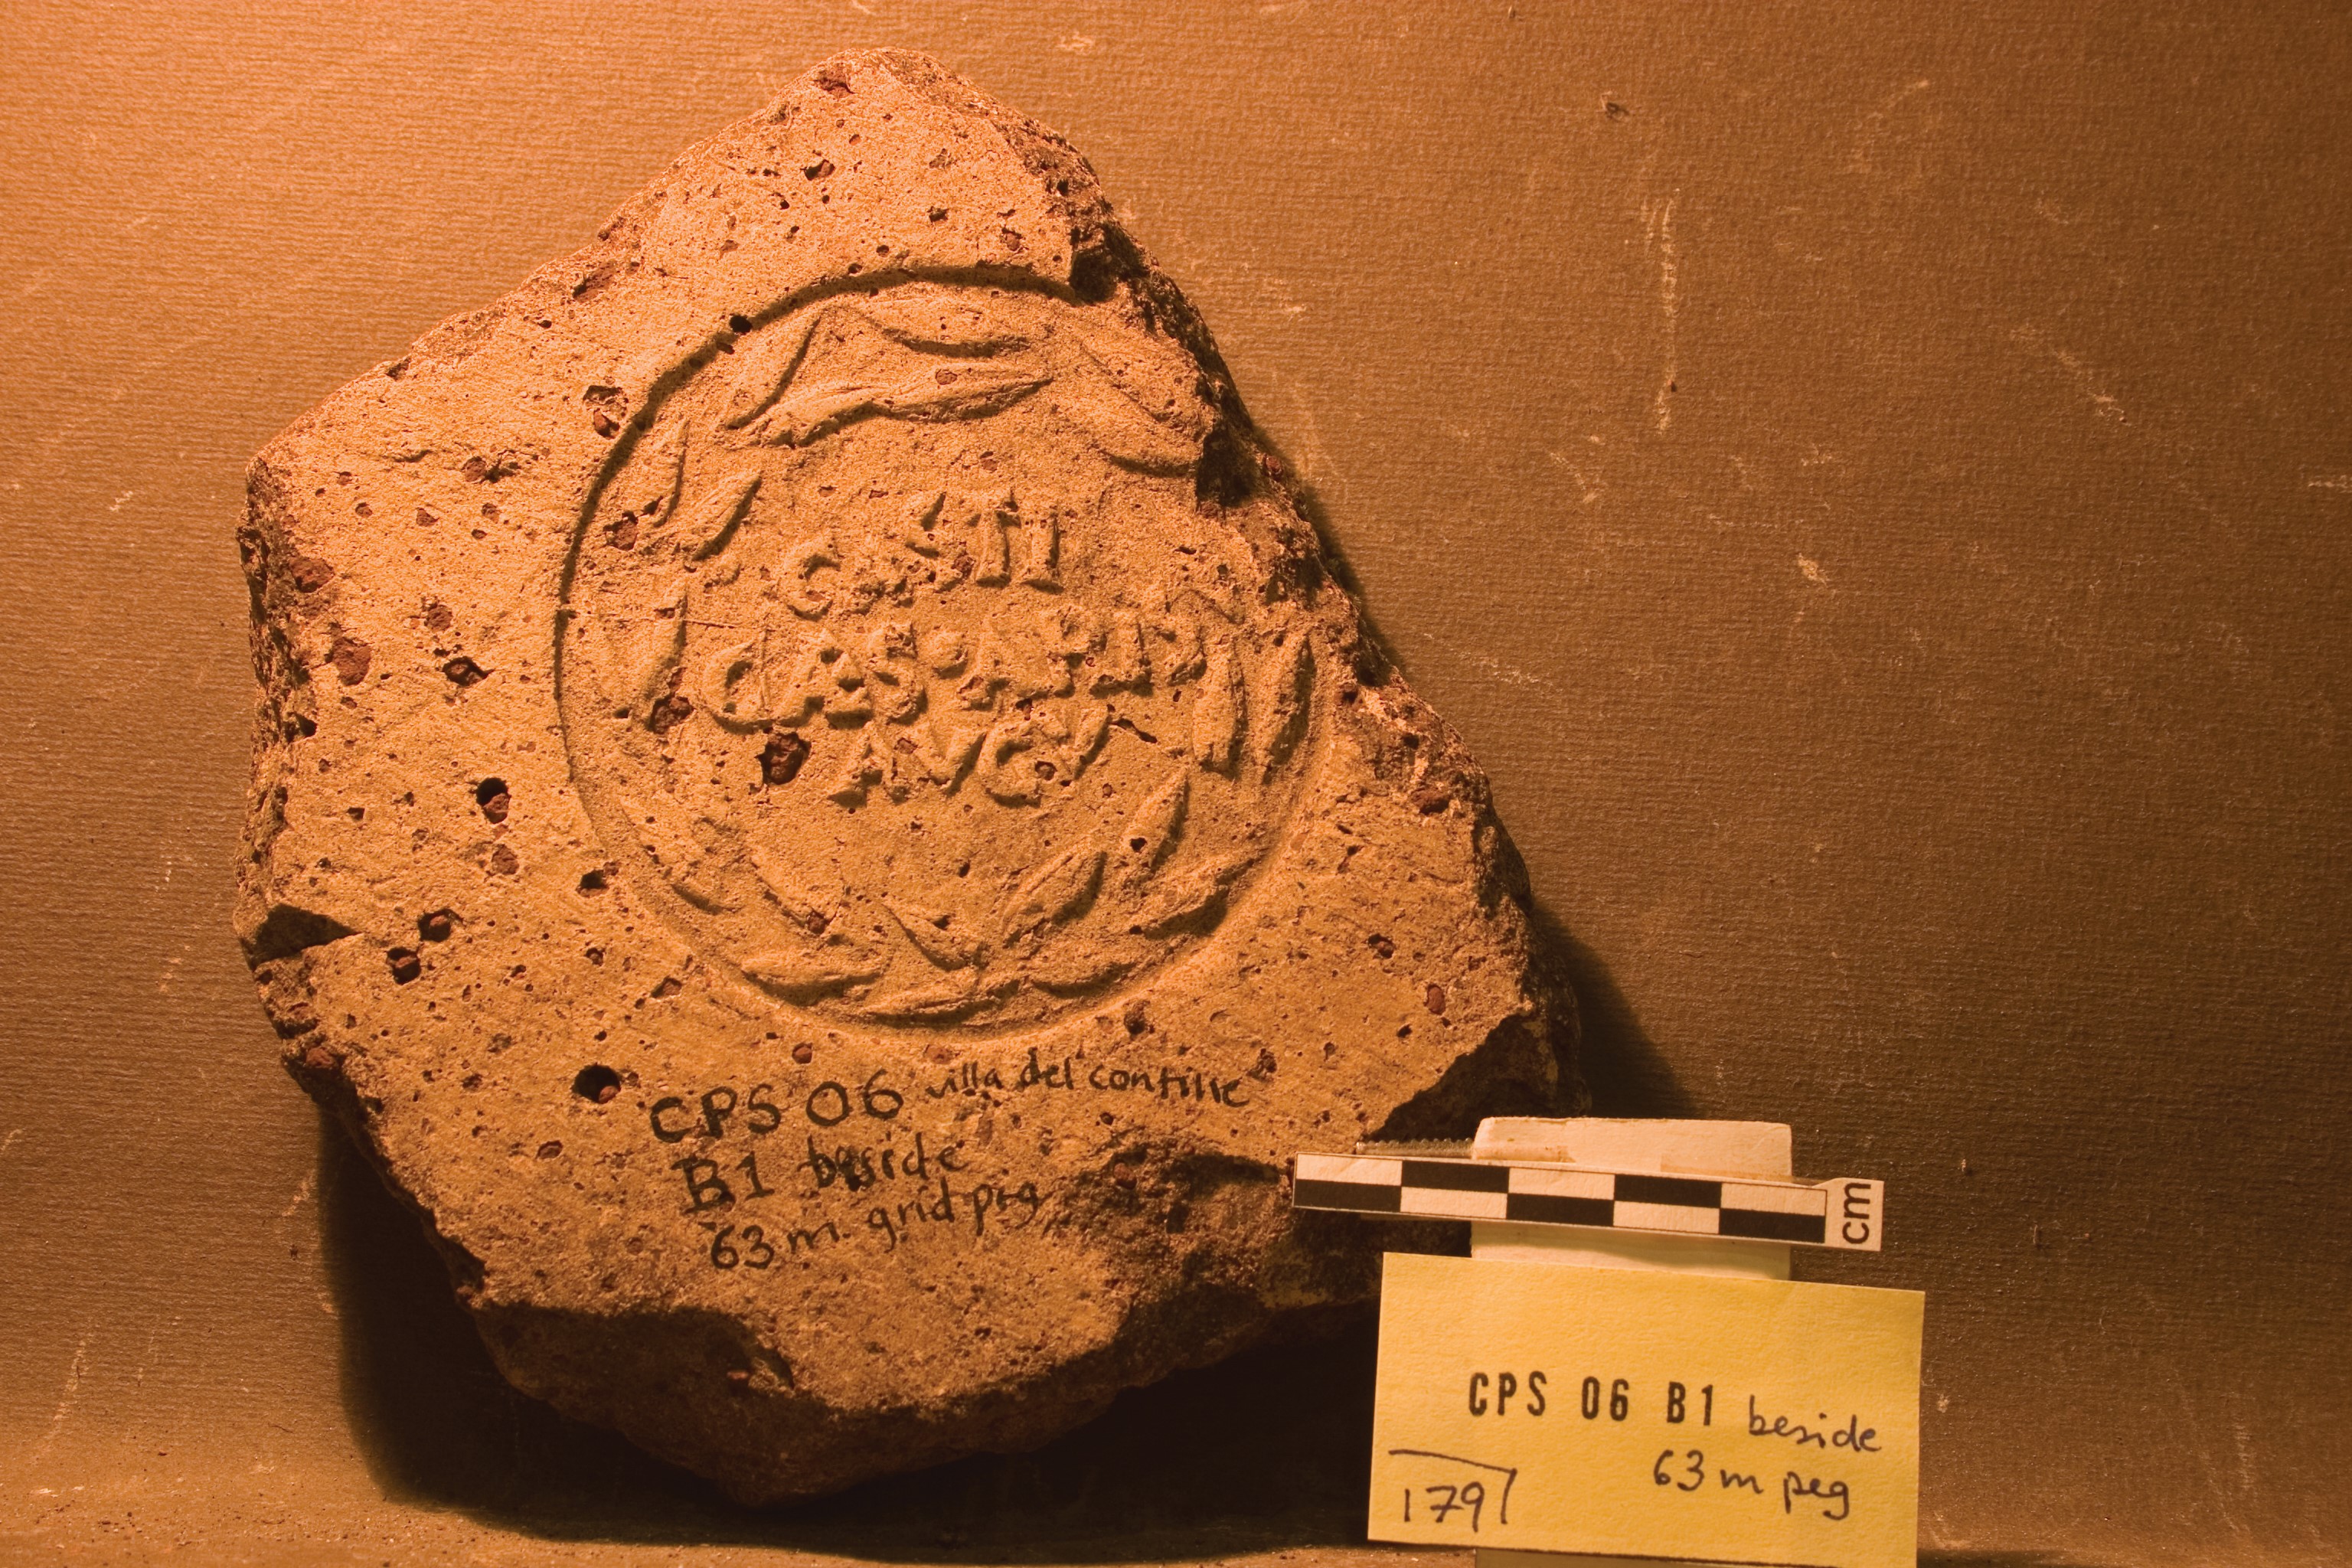 CASTI
CAES·
AVGV
CPS 06 villa del contille
B1 beside
63 m. grid peg
cm
CPS 06 B1 beside
63 m peg
179